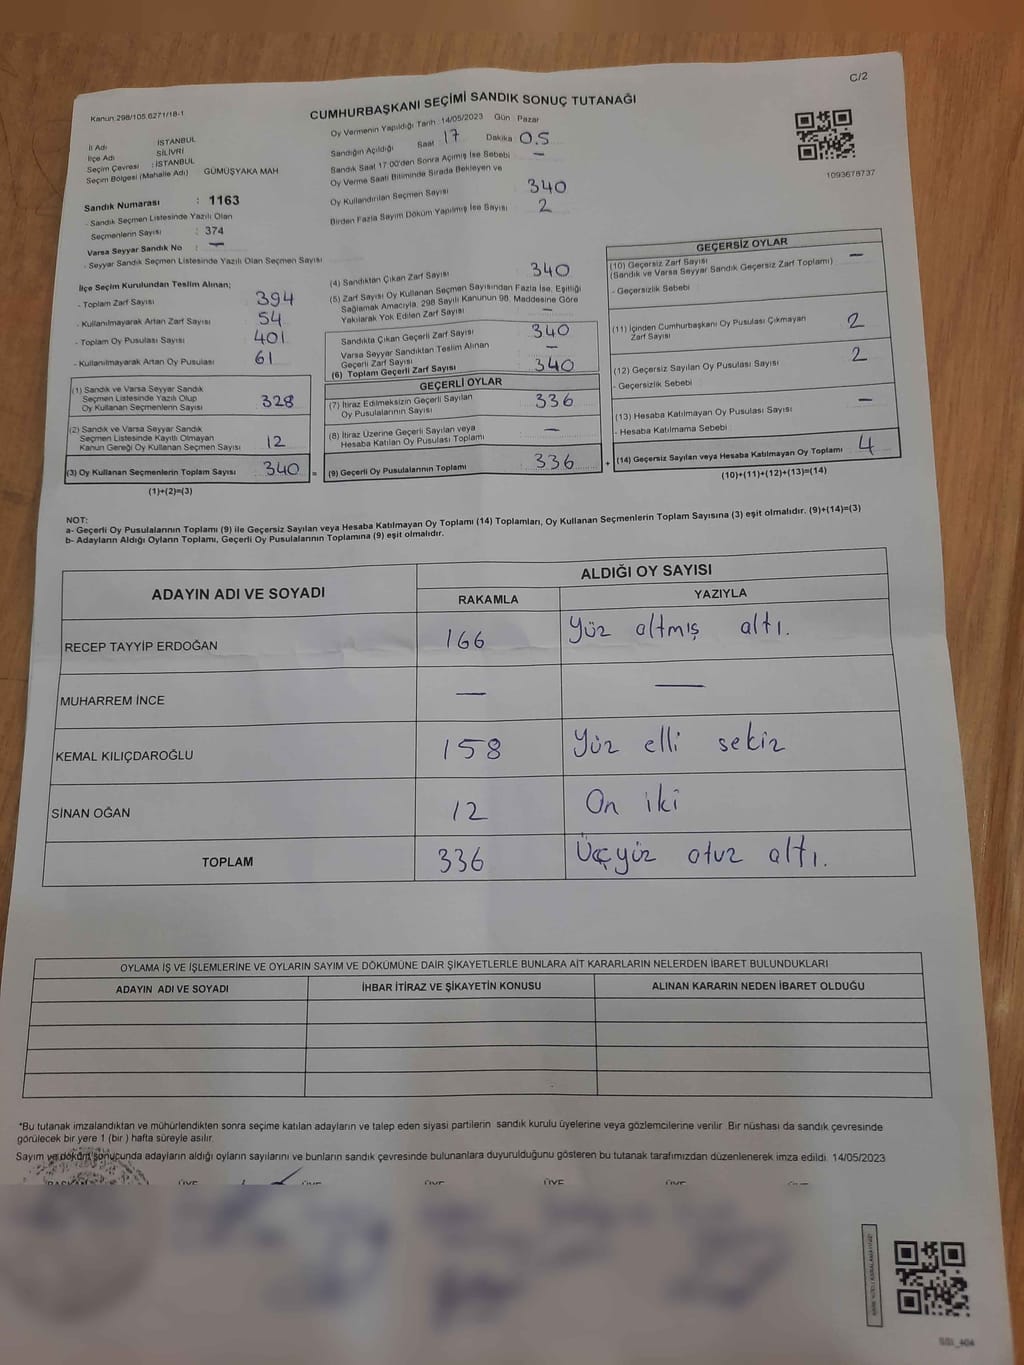 C/2
Kanun 298/105 6271/18-1
CUMHURBAŞKANI SEÇİMİ SANDIK SONUÇ TUTANAĞI
İl Adı : İSTANBUL
İlçe Adı : SİLİVRİ
Seçim Çevresi : İSTANBUL
Seçim Bölgesi (Mahalle Adı) GÜMÜŞYAKA MAH
Sandık Numarası : 1163
- Sandık Seçmen Listesinde Yazılı Olan
Seçmenlerin Sayısı : 374
Varsa Seyyar Sandık No : —
- Seyyar Sandık Seçmen Listesinde Yazılı Olan Seçmen Sayısı
Oy Vermenin Yapıldığı Tarih :14/05/2023 Gün : Pazar
Sandığın Açıldığı Saat 17 Dakika 05
Sandık Saat 17:00'den Sonra Açımış İse Sebebi —
Oy Verme Saati Bitiminde Sırada Bekleyen ve
Oy Kullandırılan Seçmen Sayısı 340
Birden Fazla Sayım Döküm Yapılmış İse Sayısı 2
1093678737
İlçe Seçim Kurulundan Teslim Alınan;
- Toplam Zarf Sayısı 394
- Kullanılmayarak Artan Zarf Sayısı 54
- Toplam Oy Pusulası Sayısı 401
- Kullanılmayarak Artan Oy Pusulası 61
(1) Sandık ve Varsa Seyyar Sandık
Seçmen Listesinde Yazılı Olup
Oy Kullanan Seçmenlerin Sayısı 328
(2) Sandık ve Varsa Seyyar Sandık
Seçmen Listesinde Kayıtlı Olmayan
Kanun Gereği Oy Kullanan Seçmen Sayısı 12
(3) Oy Kullanan Seçmenlerin Toplam Sayısı 340 =
(1)+(2)=(3)
(4) Sandıktan Çıkan Zarf Sayısı 340
(5) Zarf Sayısı Oy Kullanan Seçmen Sayısından Fazla İse, Eşitliği
Sağlamak Amacıyla, 298 Sayılı Kanunun 98. Maddesine Göre
Yakılarak Yok Edilen Zarf Sayısı —
Sandıkta Çıkan Geçerli Zarf Sayısı 340
Varsa Seyyar Sandıktan Teslim Alınan
Geçerli Zarf Sayısı —
(6) Toplam Geçerli Zarf Sayısı 340
GEÇERLİ OYLAR
(7) İtiraz Edilmeksizin Geçerli Sayılan
Oy Pusulalarının Sayısı 336
(8) İtiraz Üzerine Geçerli Sayılan veya
Hesaba Katılan Oy Pusulası Toplamı —
(9) Geçerli Oy Pusulalarının Toplamı 336 +
GEÇERSİZ OYLAR
(10) Geçersiz Zarf Sayısı —
(Sandık ve Varsa Seyyar Sandık Geçersiz Zarf Toplamı)
- Geçersizlik Sebebi
(11) İçinden Cumhurbaşkanı Oy Pusulası Çıkmayan
Zarf Sayısı 2
(12) Geçersiz Sayılan Oy Pusulası Sayısı 2
- Geçersizlik Sebebi
(13) Hesaba Katılmayan Oy Pusulası Sayısı —
- Hesaba Katılmama Sebebi
(14) Geçersiz Sayılan veya Hesaba Katılmayan Oy Toplamı 4
(10)+(11)+(12)+(13)=(14)
NOT:
a- Geçerli Oy Pusulalarının Toplamı (9) ile Geçersiz Sayılan veya Hesaba Katılmayan Oy Toplamı (14) Toplamları, Oy Kullanan Seçmenlerin Toplam Sayısına (3) eşit olmalıdır. (9)+(14)=(3)
b- Adayların Aldığı Oyların Toplamı, Geçerli Oy Pusulalarının Toplamına (9) eşit olmalıdır.
ADAYIN ADI VE SOYADI ALDIĞI OY SAYISI
RAKAMLA YAZIYLA
RECEP TAYYİP ERDOĞAN 166 Yüz altmış altı.
MUHARREM İNCE — —
KEMAL KILIÇDAROĞLU 158 Yüz elli sekiz
SİNAN OĞAN 12 On iki
TOPLAM 336 Üçyüz otuz altı.
OYLAMA İŞ VE İŞLEMLERİNE VE OYLARIN SAYIM VE DÖKÜMÜNE DAİR ŞİKAYETLERLE BUNLARA AİT KARARLARIN NELERDEN İBARET BULUNDUKLARI
ADAYIN ADI VE SOYADI İHBAR İTİRAZ VE ŞİKAYETİN KONUSU ALINAN KARARIN NEDEN İBARET OLDUĞU
*Bu tutanak imzalandıktan ve mühürlendikten sonra seçime katılan adayların ve talep eden siyasi partilerin sandık kurulu üyelerine veya gözlemcilerine verilir. Bir nüshası da sandık çevresinde
görülecek bir yere 1 (bir ) hafta süreyle asılır.
Sayım ve döküm sonucunda adayların aldığı oyların sayılarını ve bunların sandık çevresinde bulunanlara duyurulduğunu gösteren bu tutanak tarafımızdan düzenlenerek imza edildi. 14/05/2023
BAŞKAN ÜYE ÜYE ÜYE ÜYE ÜYE